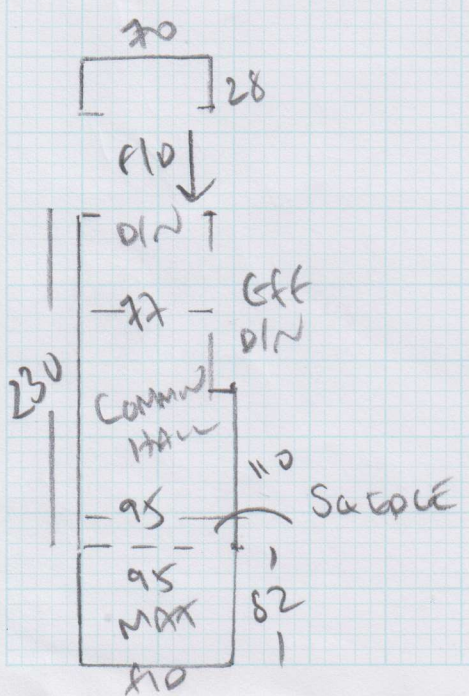 70
28
F/D
DIN
77
EFF
DIN
230
COMMN
HALL
110
95
SQ EDGE
95
MAX
82
F/D